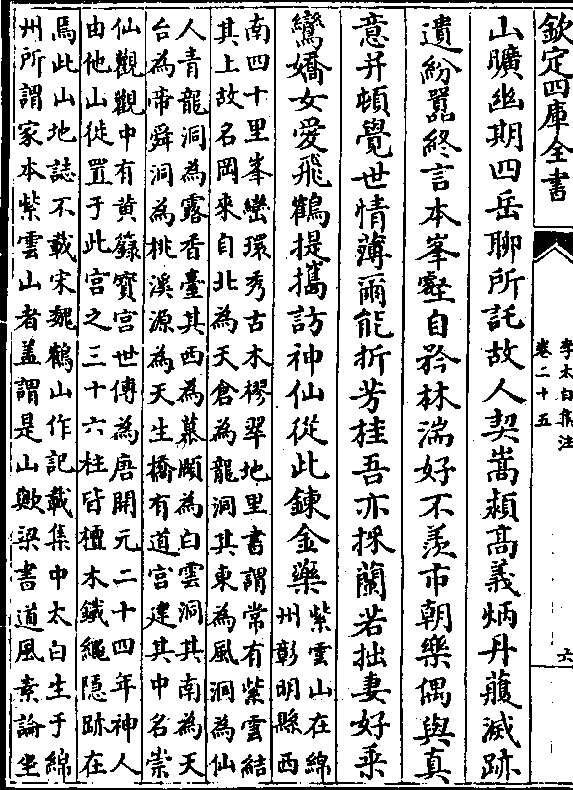 欽定四庫全書
李太白集注
卷二十五
六
山曠幽期四岳聊所託故人契嵩潁髙義炳丹雘滅跡
遺紛囂終言本峯壑自矜林湍好不羨市朝樂偶與真
意并頓覺世情薄爾能折芳桂吾亦採蘭若拙妻好乗
鸞嬌女愛飛鶴提攜訪神仙從此鍊金藥
紫雲山在綿
州彰明縣西
南四十里峯巒環秀古木樛翠地里書謂常有紫雲結
其上故名岡来自北為天倉為龍洞其東為風洞為仙
人青龍洞為露香臺其西為慕頤為白雲洞其南為天
台為帝舜洞為桃溪源為天生橋有道宫建其中名崇
仙觀觀中有黄籙寳宫世傳為唐開元二十四年神人
由他山徙置于此宫之三十六柱皆檀木鐵繩隠跡在
焉此山地誌不載宋魏鶴山作記載集中太白生于綿
州所謂家本紫雲山者盖謂是山歟梁書道風素論坐